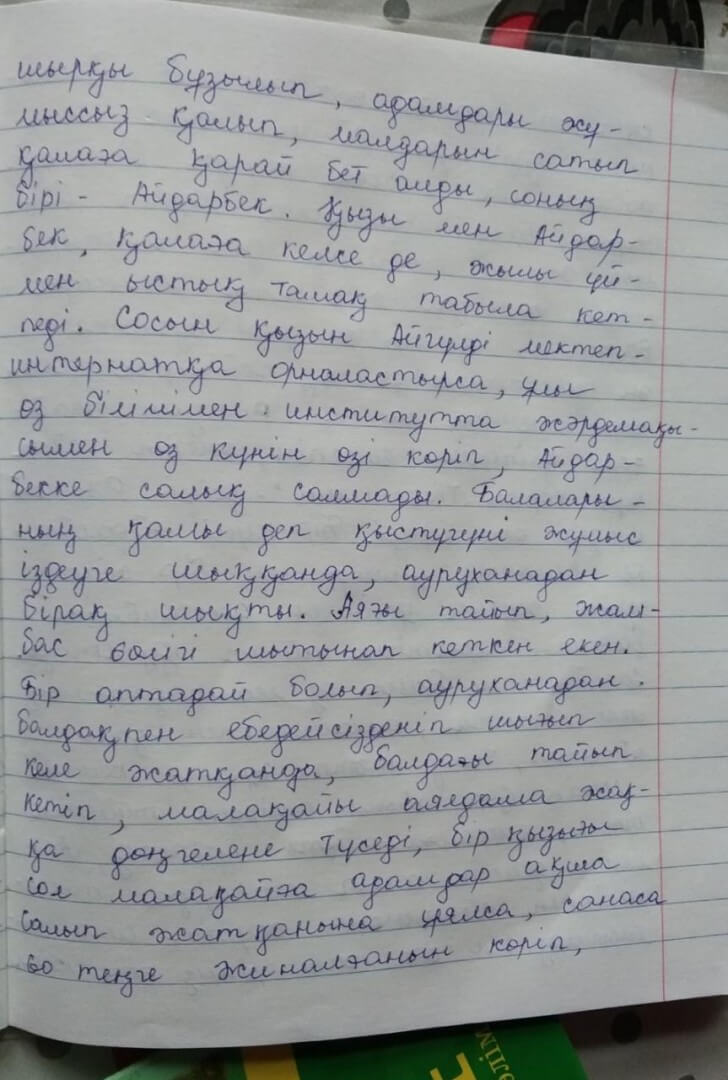 шырқы бұзылып, адамдары жұ-
мыссыз қалып, малдарын сатып
қалаға қарай бет алды, соның
бірі - Айдарбек. Қызы мен Айдар-
бек, қалаға келсе де, жылы үй-
мен ыстық тамақ табыла кет-
педі. Сосын қызын Айгүлді мектеп-
интернатқа орналастырса, ұлы
өз білімімен институтта жәрдемақы-
сымен өз күнін өзі көріп, Айдар-
бекке салық салмады. Балалары-
ның қамы деп қыстүгүні жұмыс
іздеуге шыққанда, ауруханадан
бірақ шықты. Аяғы тайып, жам-
бас бөлігі шытынап кеткен екен.
Бір аптадай болып, ауруханадан
балдақпен ебедейсізденіп шығып
келе жатқанда, балдағы тайып
кетіп, малақайы аялдама жақ-
қа дөңгелене түседі, бір қызығы
сол малақайға адамдар ақша
салып жатқанына ұялса, санаса
60 теңге жиналғанын көріп,
ӘЛІМ